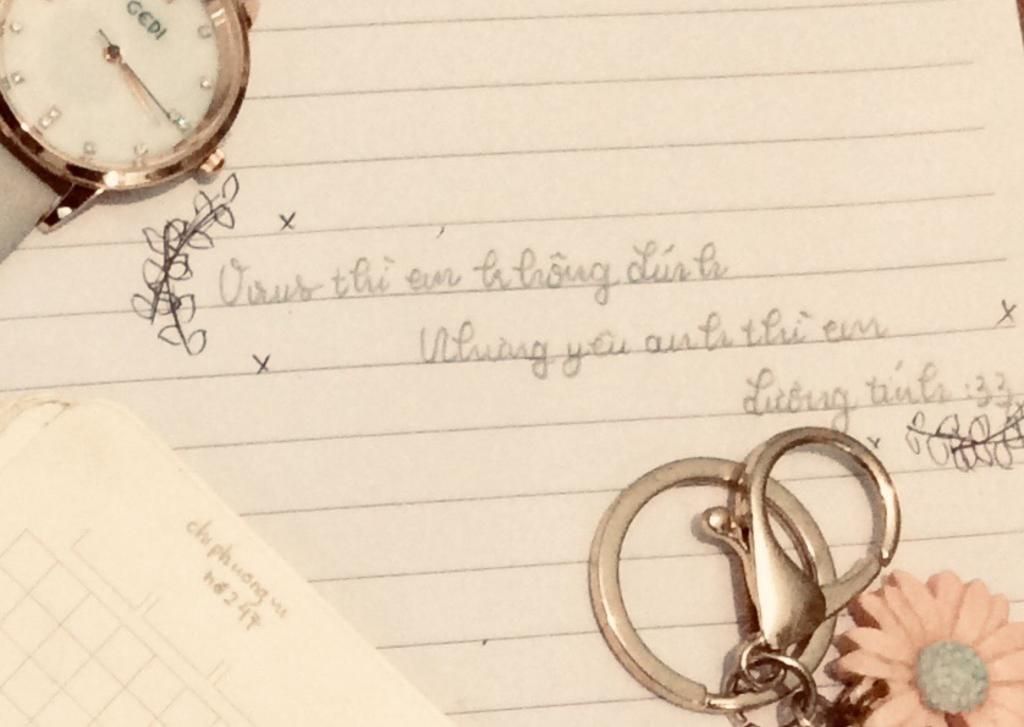 GEDI
Virus thì em không dính
Nhưng yêu anh thì em
dương tính :33
chi phuong vu
hè 247